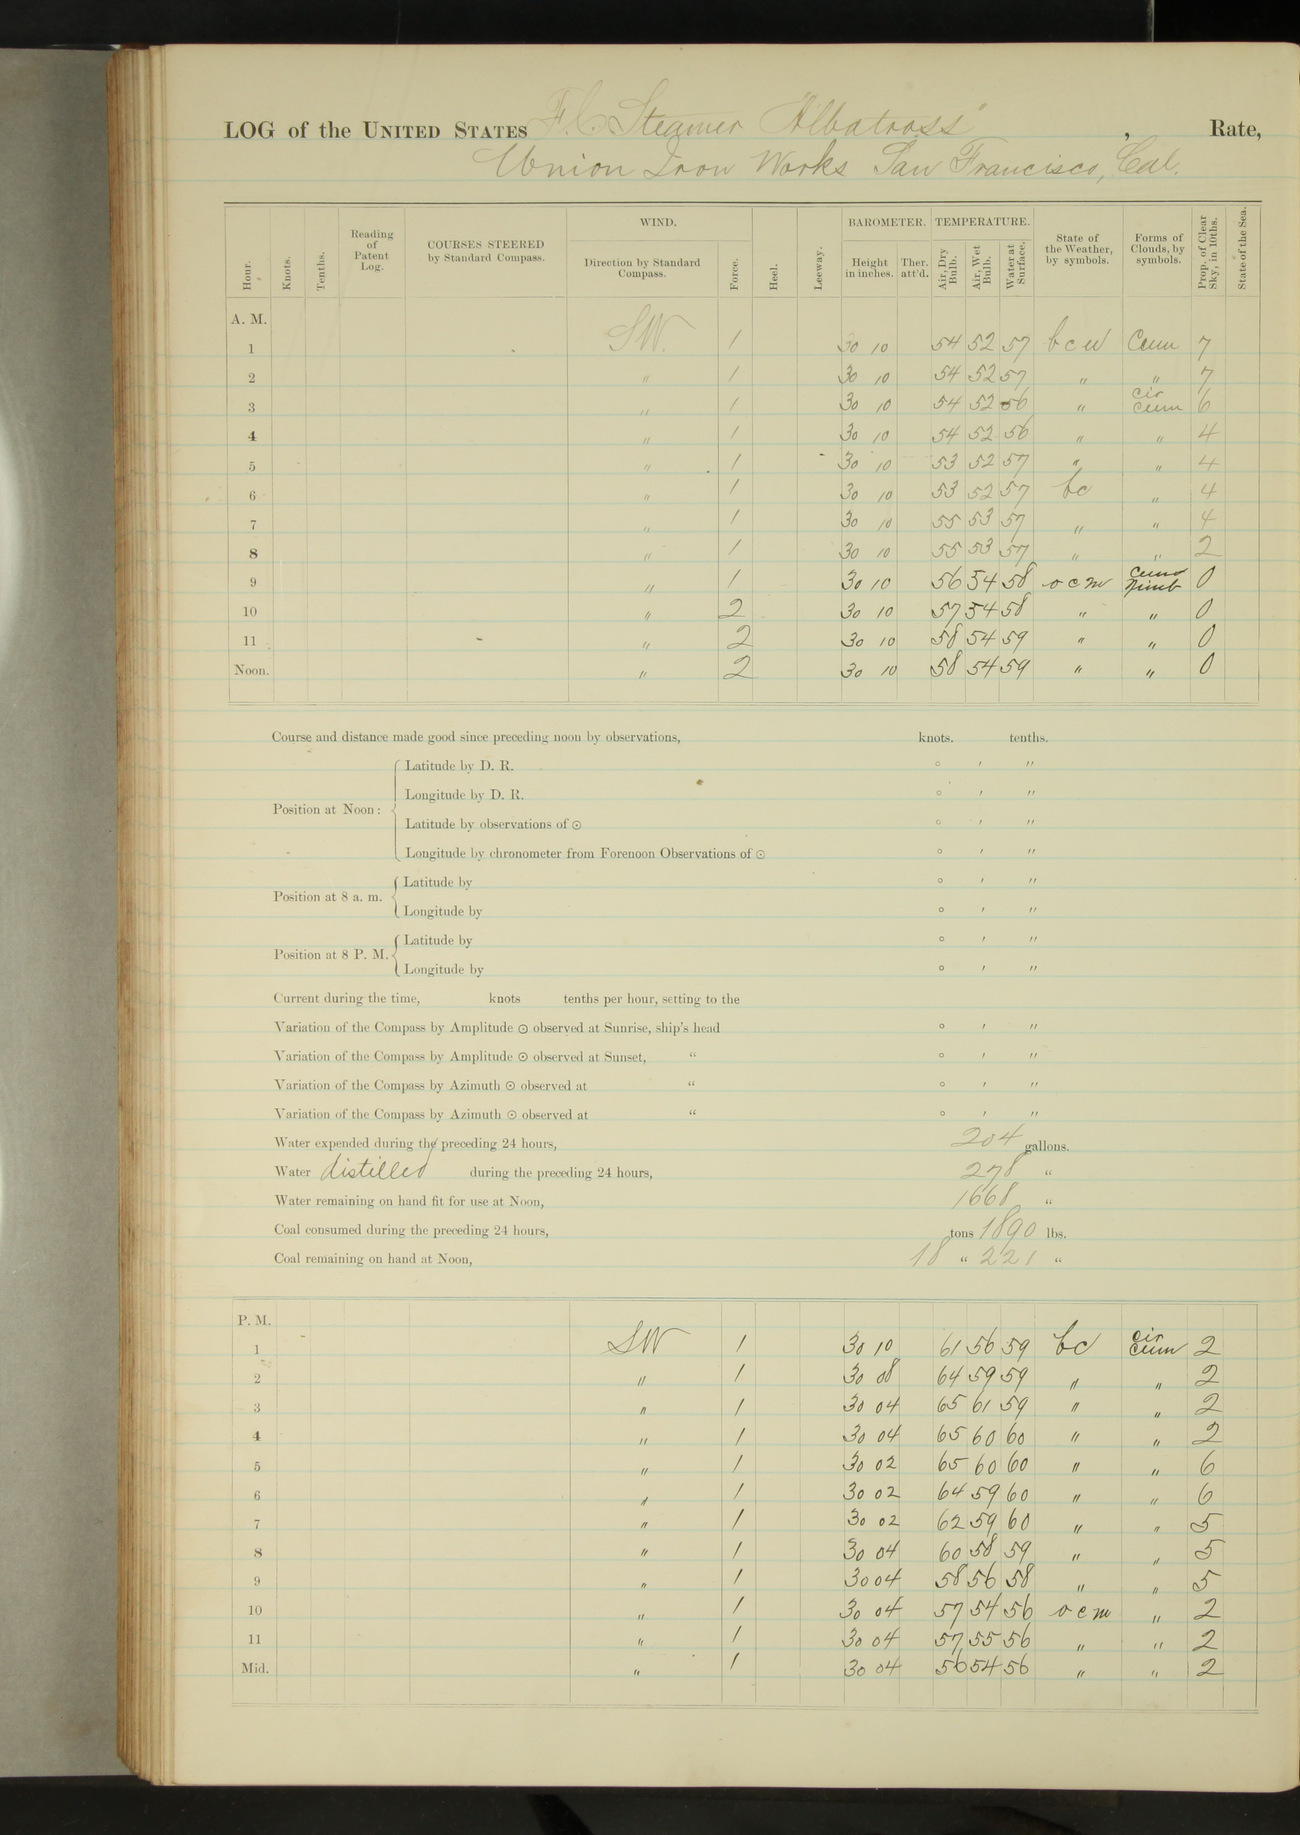 LOG of the UNITED STATES F.C. Steamer "Albatross", Rate,
Union Iron Works San Francisco, Cal.
Hour. Knots. Tenths. Reading of Patent Log. COURSES STEERED by Standard Compass. WIND. Direction by Standard Compass. Force. Heel. Leeway. BAROMETER. Height in inches. Ther. att'd. TEMPERATURE. Air, Dry Bulb. Air, Wet Bulb. Water at Surface. State of the Weather, by symbols. Forms of Clouds, by symbols. Prop. of Clear Sky, in 10ths. State of the Sea.
A. M.
1 SW. 1 30 10 54 52 57 bcw Cum 7
2 " 1 30 10 54 52 57 " " 7
3 " 1 30 10 54 52 56 " cir cum 6
4 " 1 30 10 54 52 56 " " 4
5 " 1 30 10 53 52 57 " " 4
6 " 1 30 10 53 52 57 bc " 4
7 " 1 30 10 55 53 57 " " 4
8 " 1 30 10 55 53 57 " " 2
9 " 1 30 10 56 54 58 ocm Nimb 0
10 " 2 30 10 57 54 58 " " 0
11 " 2 30 10 58 54 59 " " 0
Noon. " 2 30 10 58 54 59 " " 0
Course and distance made good since preceding noon by observations, knots. tenths.
Position at Noon:
Latitude by D. R. ° ′ ″
Longitude by D. R. ° ′ ″
Latitude by observations of ⊙ ° ′ ″
Longitude by chronometer from Forenoon Observations of ⊙ ° ′ ″
Position at 8 a. m.
Latitude by ° ′ ″
Longitude by ° ′ ″
Position at 8 P. M.
Latitude by ° ′ ″
Longitude by ° ′ ″
Current during the time, knots tenths per hour, setting to the
Variation of the Compass by Amplitude ⊙ observed at Sunrise, ship's head ° ′ ″
Variation of the Compass by Amplitude ⊙ observed at Sunset, “ ° ′ ″
Variation of the Compass by Azimuth ⊙ observed at “ ° ′ ″
Variation of the Compass by Azimuth ⊙ observed at “ ° ′ ″
Water expended during the preceding 24 hours, 204 gallons.
Water distilled during the preceding 24 hours, 278 “
Water remaining on hand fit for use at Noon, 1668 “
Coal consumed during the preceding 24 hours, tons 1890 lbs.
Coal remaining on hand at Noon, 18 “ 221 “
P. M.
1 SW 1 30 10 61 56 59 bc cir cum 2
2 " 1 30 08 64 59 59 " " 2
3 " 1 30 04 65 61 59 " " 2
4 " 1 30 04 65 60 60 " " 2
5 " 1 30 02 65 60 60 " " 6
6 " 1 30 02 64 59 60 " " 6
7 " 1 30 02 62 59 60 " " 5
8 " 1 30 04 60 58 59 " " 5
9 " 1 30 04 58 56 58 " " 5
10 " 1 30 04 57 54 56 ocm " 2
11 " 1 30 04 57 55 56 " " 2
Mid. " 1 30 04 56 54 56 " " 2